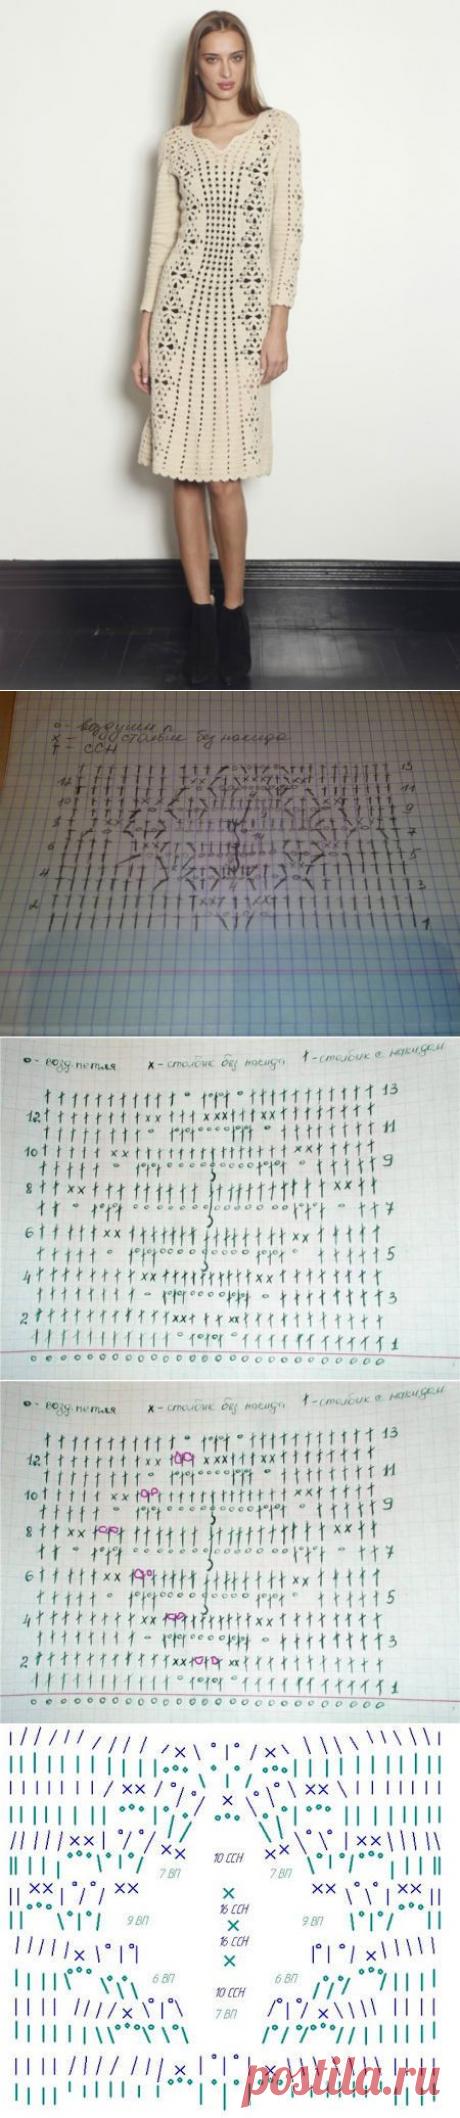 о - воздушн п
х - столбик без накида
† - ССН
12 13
10 11
8 9
6 7
4 5
2 3
1
о - возд. петля х - столбик без накида † - столбик с накидом
13
12
11
10
9
8
7
6
5
4
3
2
1
о - возд. петля х - столбик без накида † - столбик с накидом
13
12
11
10
9
8
7
6
5
4
3
2
1
10 ССН
7 ВП 7 ВП
16 ССН
9 ВП 9 ВП
16 ССН
6 ВП 6 ВП
10 ССН
7 ВП
postila.ru